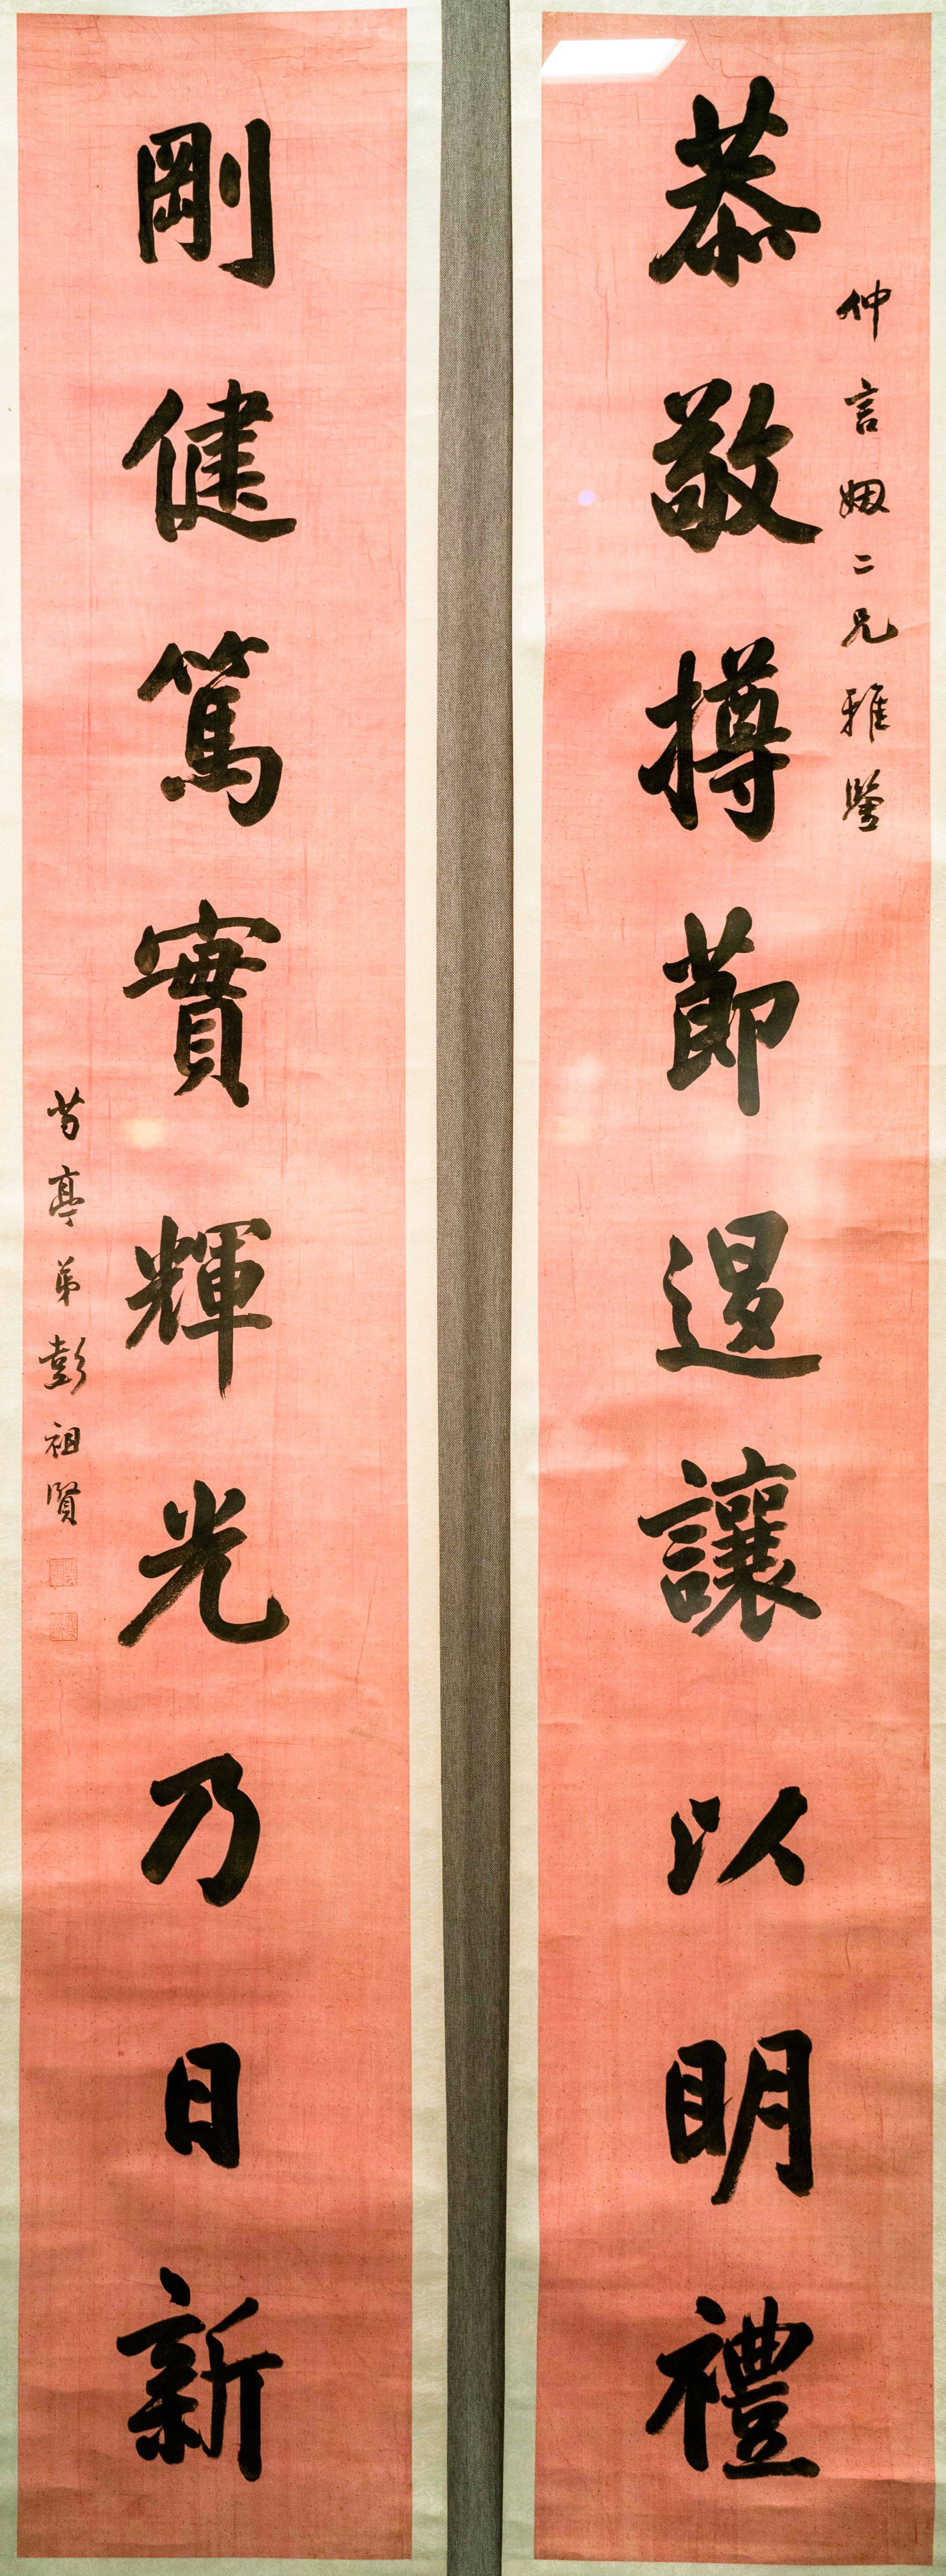 仲言姻二兄雅鑒
恭敬撙節退讓以明禮
剛健篤實輝光乃日新
芍亭弟彭祖賢